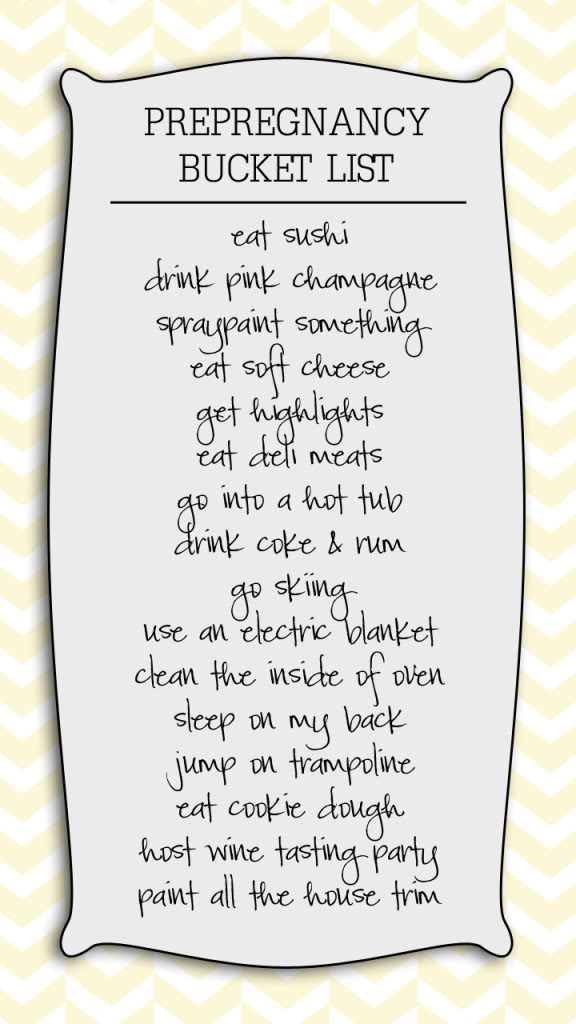 PREPREGNANCY
BUCKET LIST
eat sushi
drink pink champagne
spraypaint something
eat soft cheese
get highlights
eat deli meats
go into a hot tub
drink coke & rum
go skiing
use an electric blanket
clean the inside of oven
sleep on my back
jump on trampoline
eat cookie dough
host wine tasting party
paint all the house trim